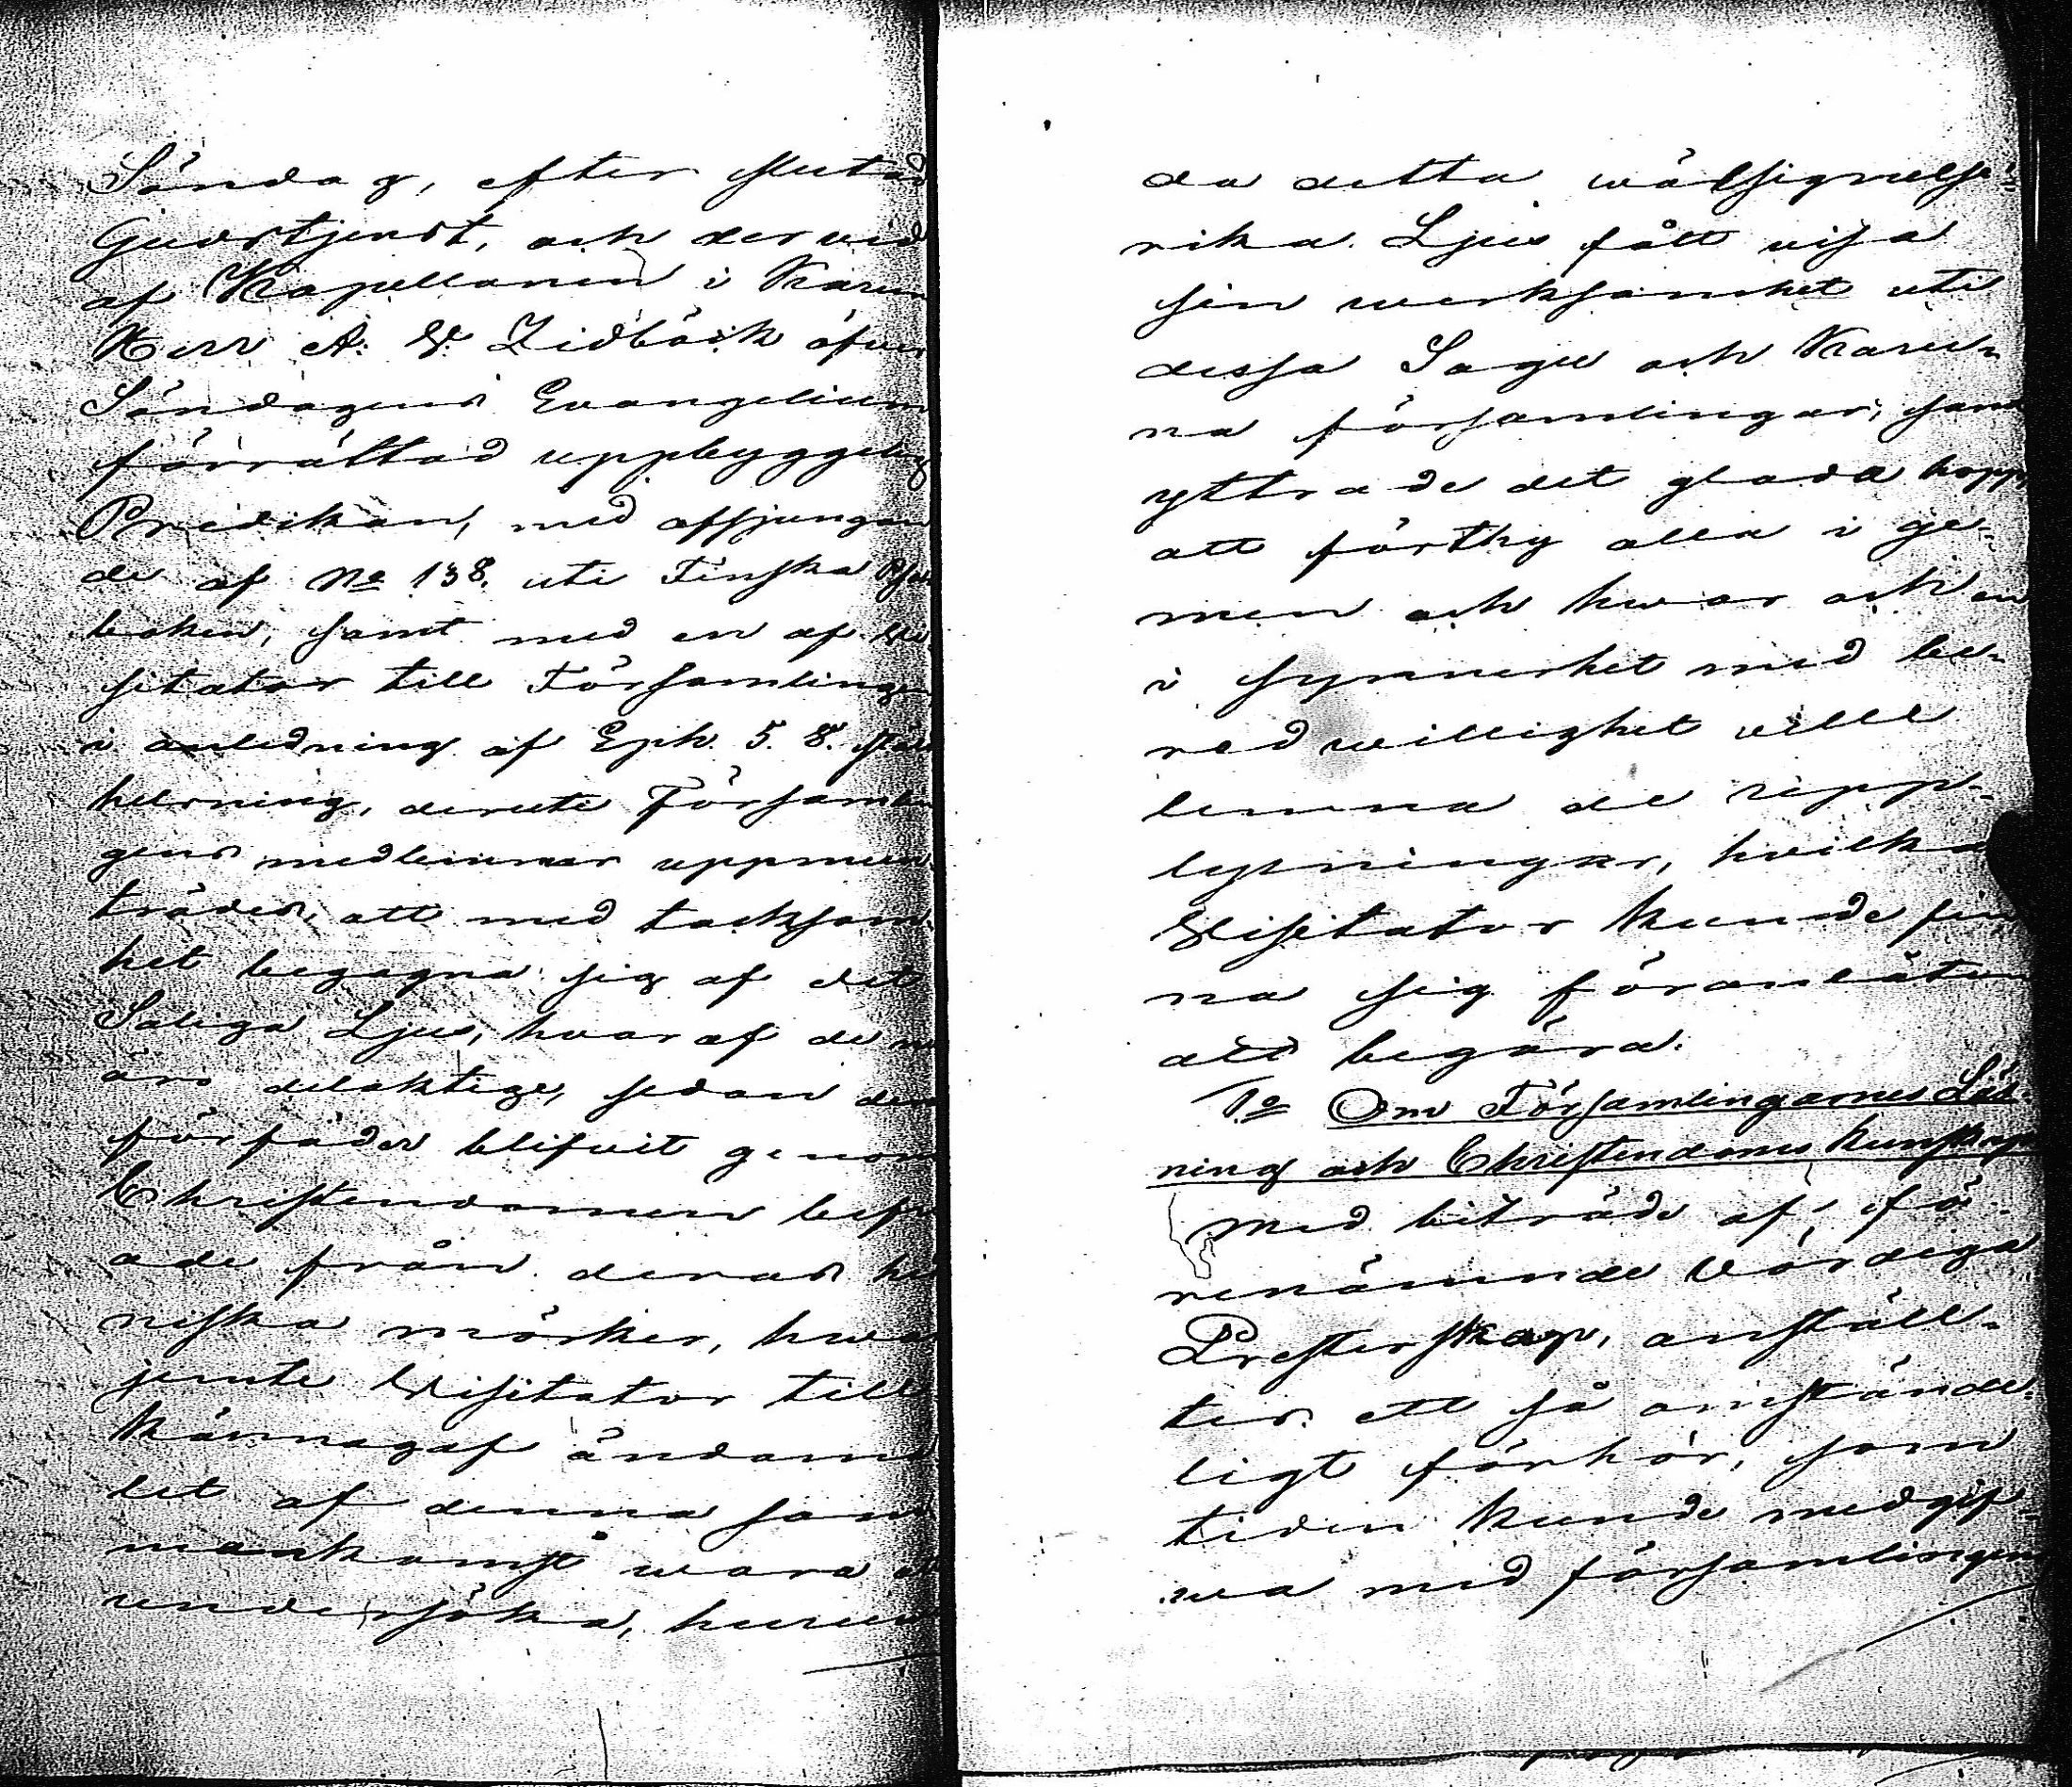 Söndag, efter slutad
Gudstjenst, och dervid
af Kapellanen i Karu
Herr A. W. Zidbäck öfver
Söndagens Evangelium
förrättad uppbyggelig
Predikan, med afsjungan
de af No 138. uti Finska Psal
boken, samt med en af Vi
sitator till Församlingen
i anledning af Eph. 5. 8.
helsning, deruti Församlin
gens medlemmar uppmun
trades, att med tacksam
het begagna sig af det
Saliga Ljus, hvaraf de nu
äro delaktige, sedan dera
förfäder blifvit genom
Christendomen befri
ade från deras hed
niska mörker, hwar
jemte Visitator till
kännagaf ändamå
let af denna sam
mankomst wara at
undersöka, huru
da detta wälsignelse-
rika Ljus fått visa
sin werksamhet uti
dessa Sagu och Karu-
na församlingar, samt
yttrade det glada hopp,
att förthy alla i ge-
men och hwar och en
i synnerhet med be-
redwillighet ville
lemna de upp-
lysningar, hvilka
Visitator kunde fin
na sig föranlåten
att begära.
1o Om Församlingarnes Läs-
ning och Christendoms kunskap
Med biträde af fö-
renämnde Vördiga
Presterskap, anställ-
tes ett så omstände-
ligt förhör, som
tiden kunde medgif-
wa med församlingens